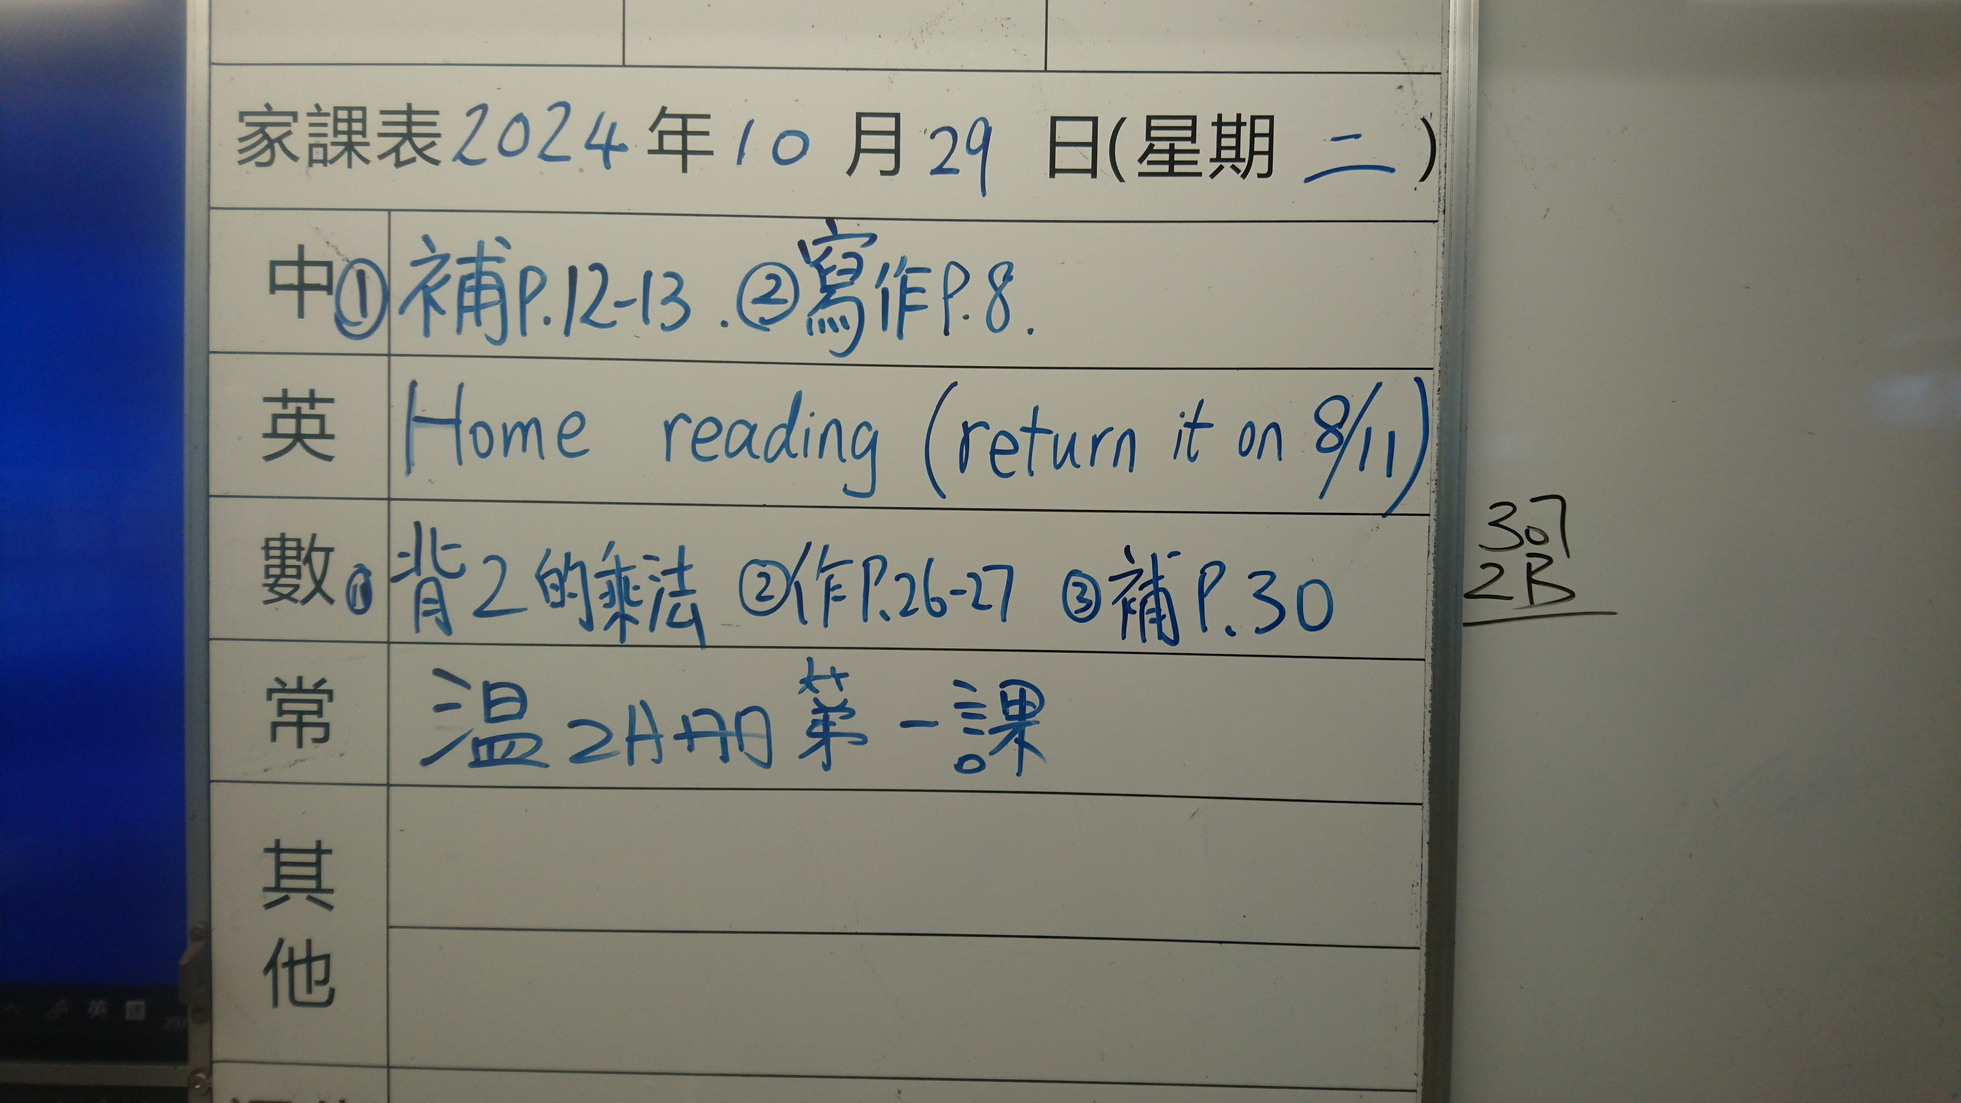 家課表2024年10月29日(星期二)
中①補P.12-13.②寫作P.8.
英 Home reading (return it on 8/11)
數①背2的乘法 ②作P.26-27 ③補P.30
常 温2A冊第一課
其他
307
2B
英